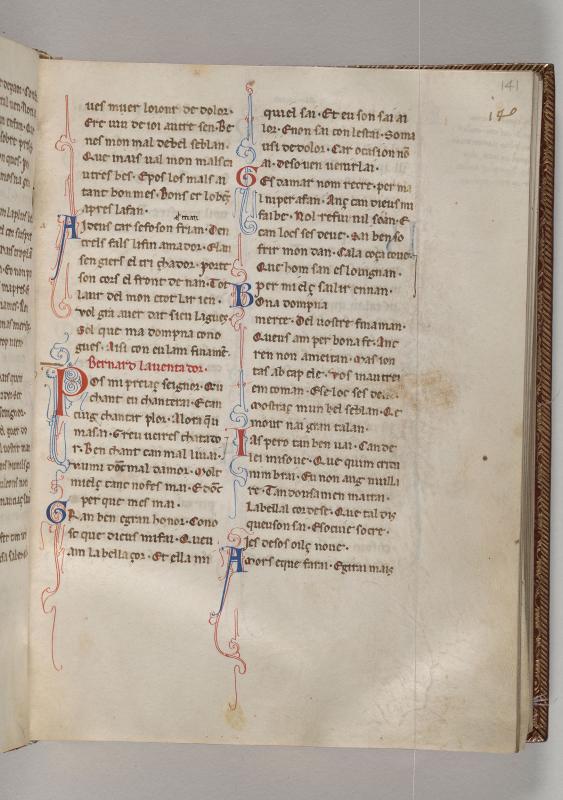 141
140
ues muer loionr de dolor.
Ere uau de ioi autre sen. Be
nes mon mal debel seblan.
Que mais ual mon mals ca
utres bes. E pos lo mals ai
tant bon mes. Bons er lo bes
apres lafan.
Ai deus car se foson frian. Den
trels fals lafin amador. E lau
sengiers el tri chador. portes
son cors el front de nan. Tot
laur del mon e tot lar ien.
uol gra auer dat sien lagues.
Sol que ma dompna cono
gues. Aisi con eu lam finamen.
Bernard lauentador.
Pos mi preias seignor. Qu
chant eu chantarai. E can
cuig chantar plor. Alora qu
masai. Greu ueires chantado
r. Ben chant can mal li uai.
uaimi donc mal damor. Molt
mielz canc no fes mai. E donc
per que mes mai.
Gran ben e gran honor. Cono
sc que dieus mi fai. Queu
am la bellaçor. Et ella mi
quiel sai. Et eu son sai ai
lor. E non sai con lestai. So ma
usi de dolor. Car ocasion no
ai. de souen uenir lai.
Ges damar nom recre. per mal
ni per afan. Anc can dieus mi
fai be. Nol refui nil soan. E
can loc ses deue. Sai ben so
frir mon dan. Cala coça coue.
Que hom san es loingnan.
per mielz salir ennan.
Bona dompna
merce. Del uostre fin aman.
Queus am per bona fe. Anc
ren non amei tan. Mas ion
tas ab cap cle. Vos mautrei
em coman. E se loc ses deue.
mostras mun bel seblan. Qe
mout nai gran talan.
Tas pero tan ben uai. Can de
lei mi soue. Que quim crida
nim brai. Eu non aug nuilla
re. Tan dousamen matrai.
La bella l cor de se. Que tal diz
queu son sai. E so cuie so cre.
Ies de sos oilz no ue.
Amors e que farai. E girai mais